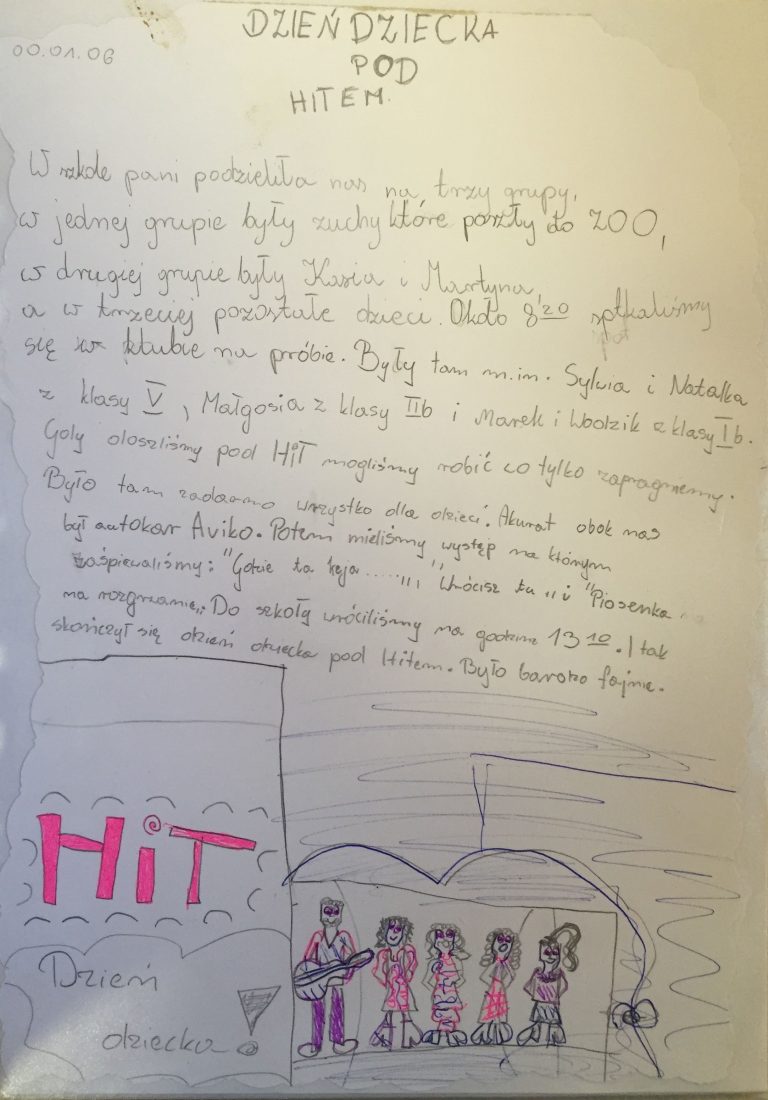 DZIEŃ DZIECKA
00.01.06
POD
HITEM.
W szkole pani podzieliła nas na trzy grupy,
w jednej grupie były zuchy które poszły do ZOO,
w drugiej grupie były Kasia i Martyna,
a w trzeciej pozostałe dzieci. Około 8'20 sptkaliśmy
się w klubie na próbie. Były tam m.in. Sylwia i Natalka
z klasy V, Małgosia z klasy IIb i Marek i Wodzik z klasy Ib.
Gdy doszliśmy pod HiT mogliśmy robić co tylko zapragniemy.
Było tam zadarmo wszystko dla dzieci. Akurat obok nas
był autokar Aviko. Potem mieliśmy występ na którym
zaśpiewaliśmy: "Gdzie ta keja......,,, "Wrócisz tu ,, i "Piosenka
na rozgrzanie,,. Do szkoły wróciliśmy na godzine 13 10. I tak
skończył się dzień dziecka pod Hitem. Było bardzo fajnie.
HiT
Dzień
dziecka!